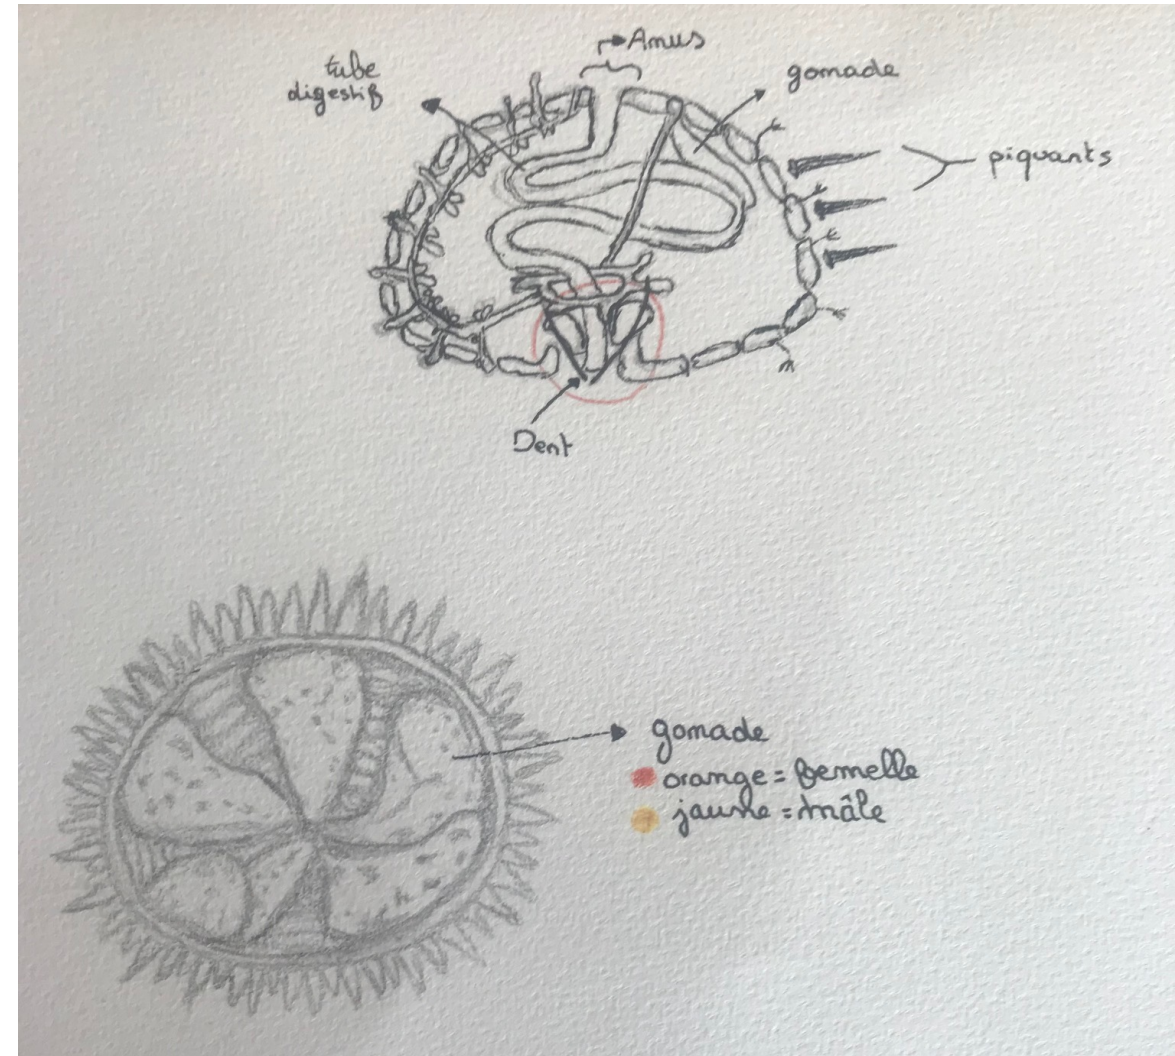 Anus
tube
digestif
gomade
piquants
Dent
gomade
orange = femelle
jaune = mâle